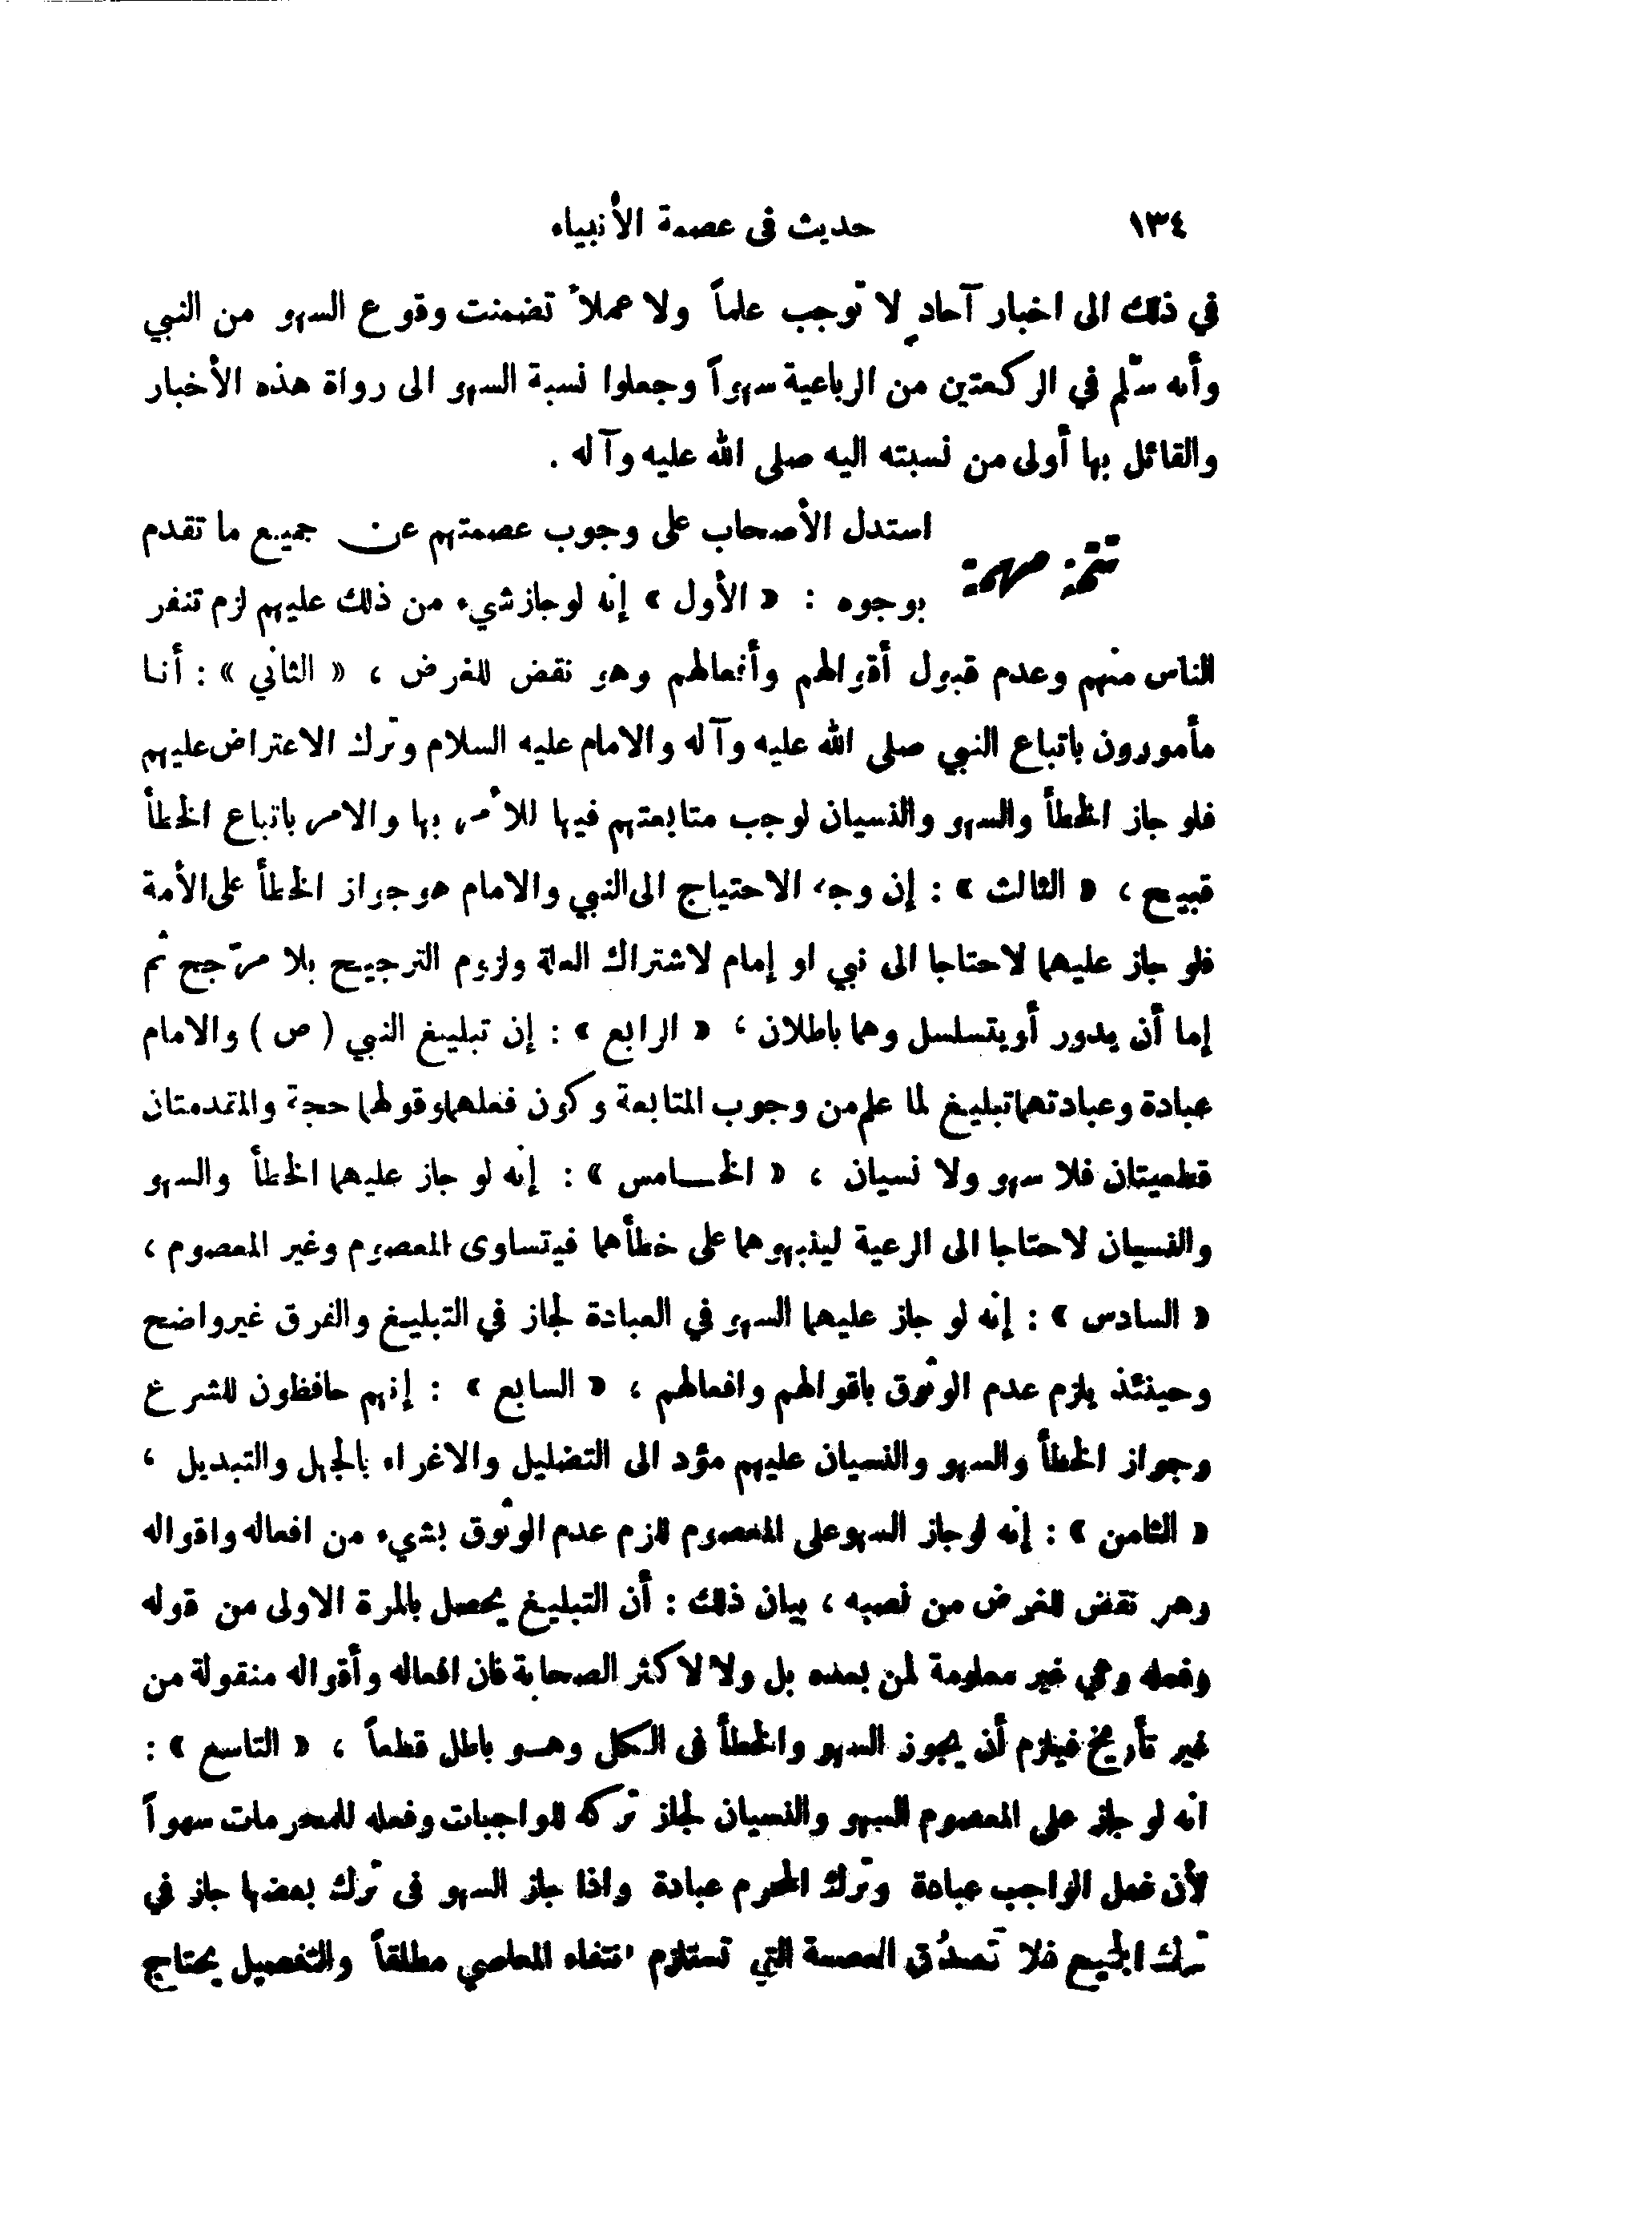 ١٣٤ حديث في عصمة الأنبياء
في ذلك الى اخبار آحادٍ لا توجب علماً ولا عملاً تضمنت وقوع السهو من النبي
وأنه سلّم في الركعتين من الرباعية سهواً وجعلوا نسبة السهو الى رواة هذه الأخبار
والقائل بها أولى من نسبته اليه صلى الله عليه وآله .
تتمة مهمة
استدل الأصحاب على وجوب عصمتهم عن جميع ما تقدم
بوجوه : « الأول » إنه لو جاز شيء من ذلك عليهم لزم تنفر
الناس منهم وعدم قبول أقوالهم وأفعالهم وهو نقض للغرض ، « الثاني » : أنا
مأمورون باتباع النبي صلى الله عليه وآله والامام عليه السلام وترك الاعتراض عليهم
فلو جاز الخطأ والسهو والنسيان لوجب متابعتهم فيها للأمر بها والامر باتباع الخطأ
قبيح ، « الثالث » : إن وجه الاحتياج الى النبي والامام هو جواز الخطأ على الأمة
فلو جاز عليهما لاحتاجا الى نبي او إمام لاشتراك العلة ولزوم الترجيح بلا مرّجح ثم
إما أن يدور أو يتسلسل وهما باطلان ، « الرابع » : إن تبليغ النبي ( ص ) والامام
عبادة وعبادتهما تبليغ لما علم من وجوب المتابعة وكون فعلهما وقولهما حجة والمقدمتان
قطعيتان فلا سهو ولا نسيان ، « الخـامس » : إنه لو جاز عليهما الخطأ والسهو
والنسيان لاحتاجا الى الرعية لينبهوهما على خطأهما فيتساوى المعصوم وغير المعصوم ،
« السادس » : إنه لو جاز عليهما السهو في العبادة لجاز في التبليغ والفرق غير واضح
وحينئذ يلزم عدم الوثوق باقوالهم وافعالهم ، « السابع » : إنهم حافظون للشرع
وجواز الخطأ والسهو والنسيان عليهم مؤد الى التضليل والاغراء بالجهل والتبديل ،
« الثامن » : إنه لو جاز السهو على المعصوم للزم عدم الوثوق بشيء من افعاله واقواله
وهو نقض للغرض من نصبه ، بيان ذلك : أن التبليغ يحصل بالمرة الاولى من قوله
وفعله وهي غير معلومة لمن بعده بل ولا لاكثر الصحابة فان افعاله وأقواله منقولة من
غير تأريخ فيلزم أن يجوز السهو والخطأ في الكل وهو باطل قطعاً ، « التاسع » :
انه لو جاز على المعصوم السهو والنسيان لجاز تركه للواجبات وفعله للمحرمات سهواً
لأن فعل الواجب عبادة وترك المحرم عبادة واذا جاز السهو في ترك بعضها جاز في
ترك الجميع فلا تَصدُق العصمة التي تستلزم انتفاء المعاصي مطلقاً والتفصيل يحتاج